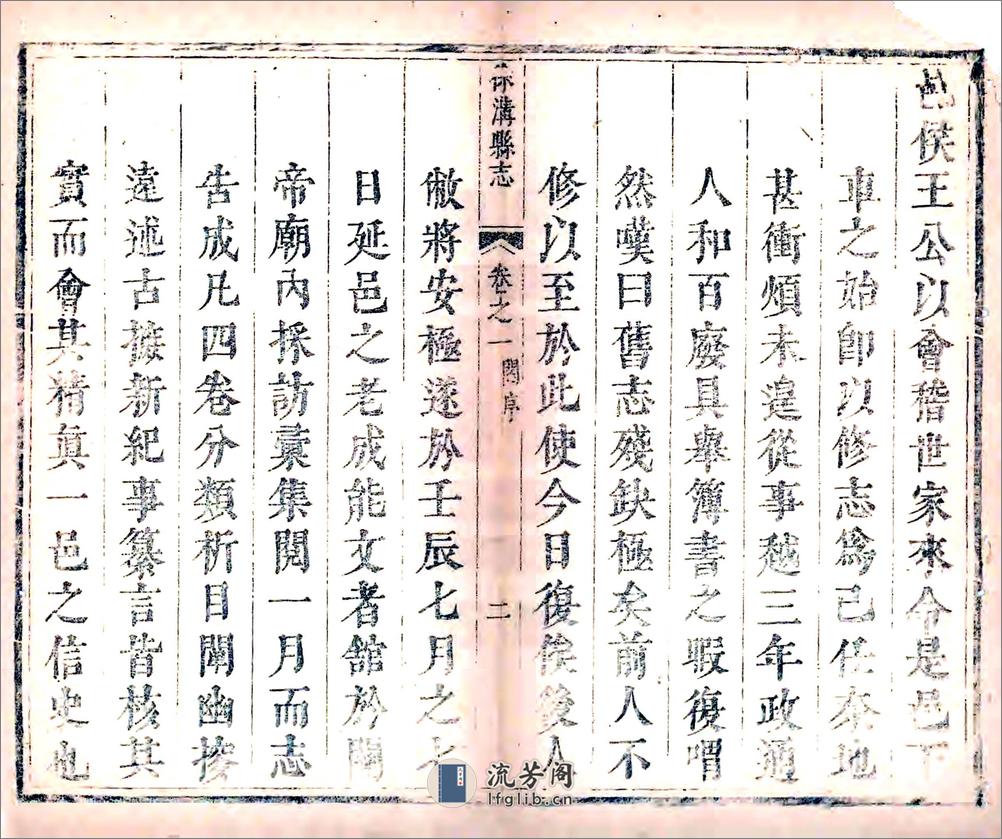 邑侯王公以會稽世家來令是邑下
車之始卽以修志爲己任奈地
甚衝煩未遑從事越三年政通
人和百廢具舉簿書之暇復喟
然嘆曰舊志殘缺極矣前人不
修以至於此使今日復俟後人
溝縣志
卷之一
序
二
敝將安極遂於壬辰七月之七
日延邑之老成能文者舘於關
帝廟內採訪彙集閱一月而志
告成凡四卷分類析目闡幽
遠述古據新紀事纂言皆核其
實而會其精眞一邑之信史也
流芳阁
lfglib.cn